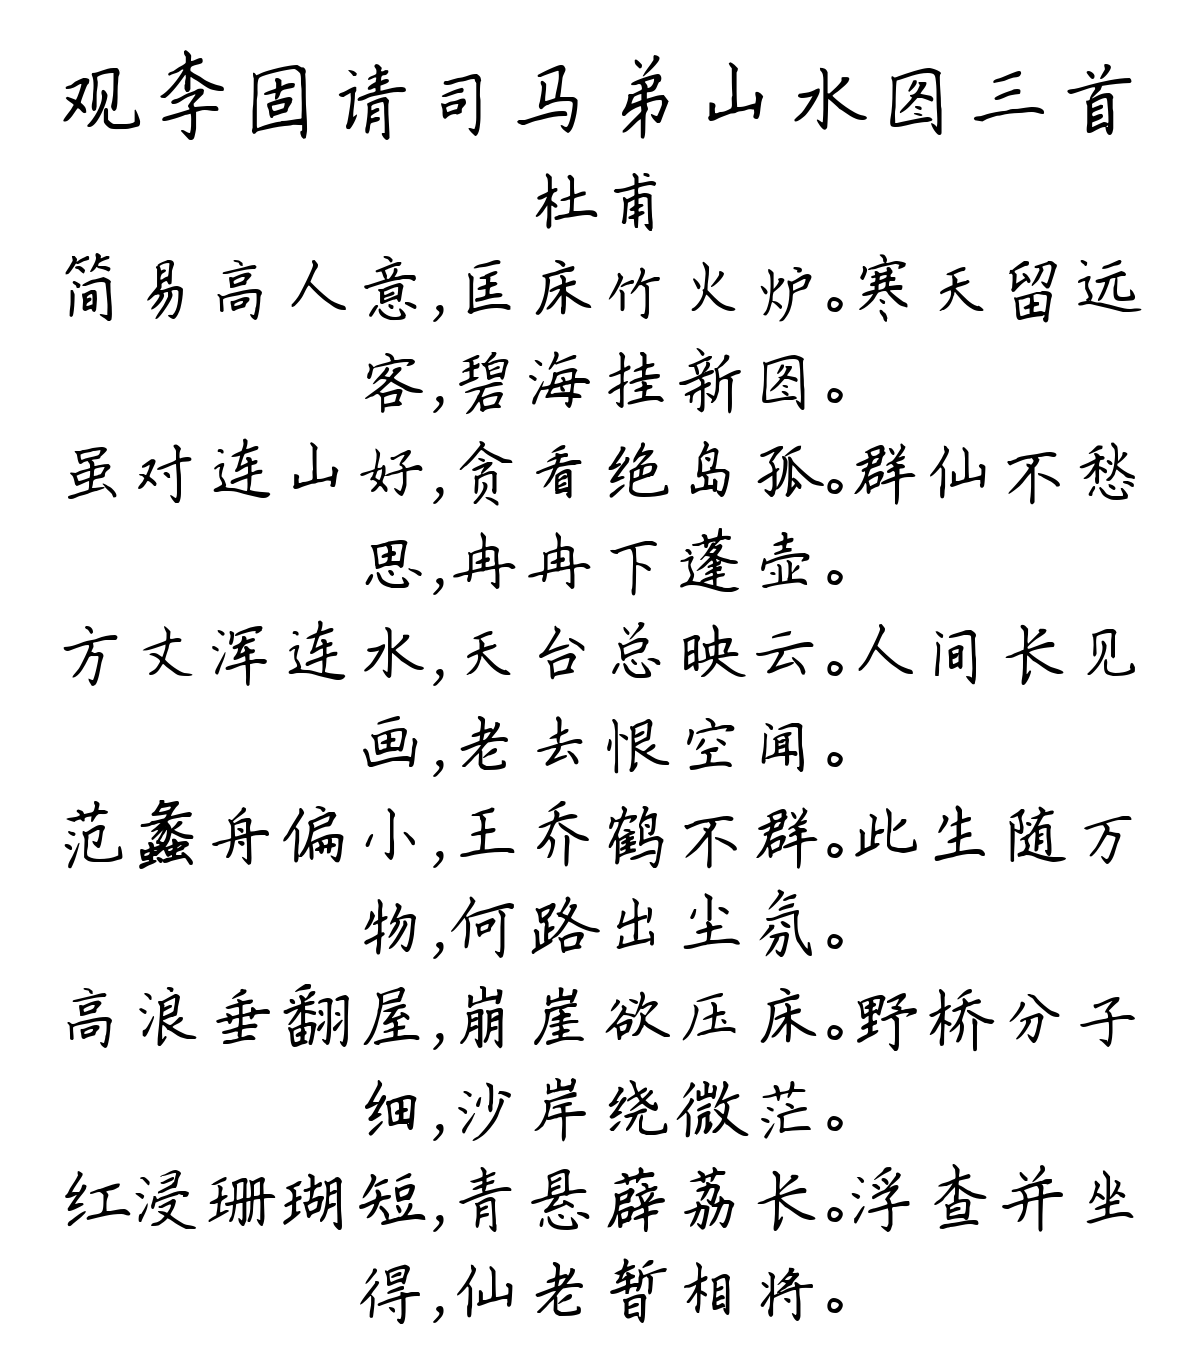 观李固请司马弟山水图三首
杜甫
简易高人意,匡床竹火炉。寒天留远
客,碧海挂新图。
虽对连山好,贪看绝岛孤。群仙不愁
思,冉冉下蓬壶。
方丈浑连水,天台总映云。人间长见
画,老去恨空闻。
范蠡舟偏小,王乔鹤不群。此生随万
物,何路出尘氛。
高浪垂翻屋,崩崖欲压床。野桥分子
细,沙岸绕微茫。
红浸珊瑚短,青悬薜荔长。浮查并坐
得,仙老暂相将。